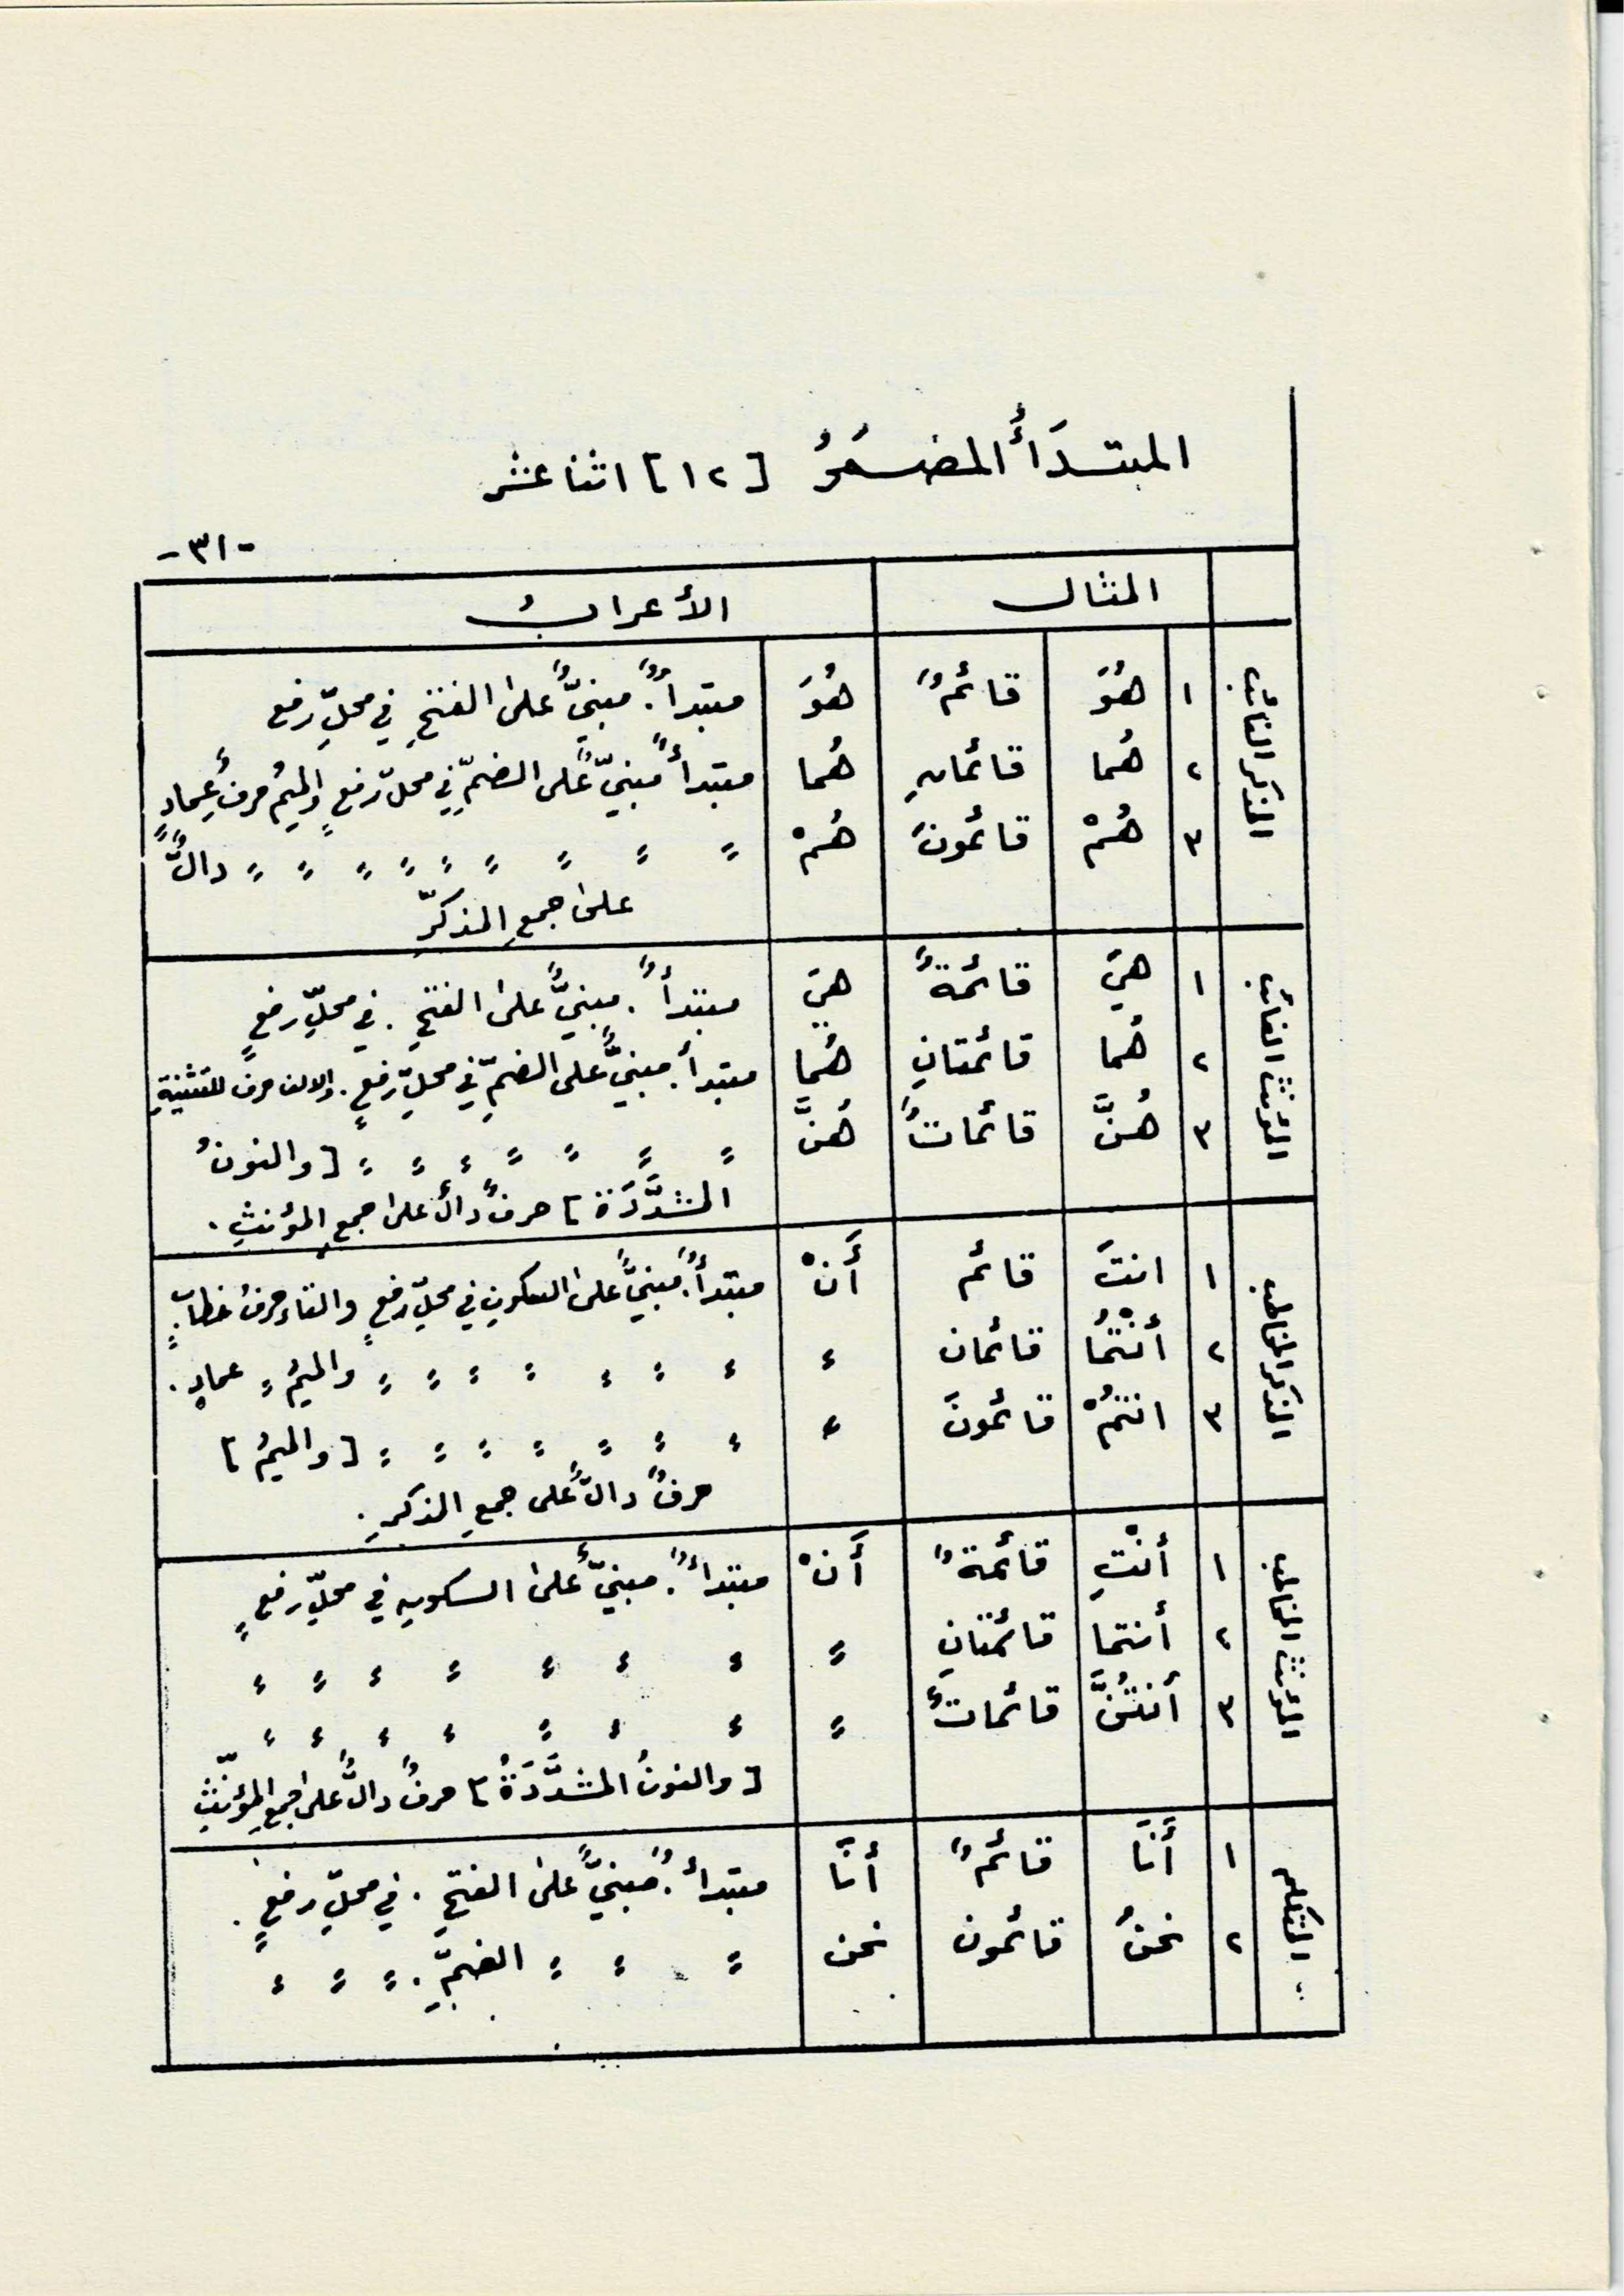 المبتدَأُ المضمَرُ [١٢] اثنا عشر
-٣١-
المثال الأعرابُ
المذكر الغائب
١ هُوَ قائمٌ هُوَ مبتدأٌ. مبنيٌّ على الفتحِ في محلِّ رفع
٢ هُما قائمانِ هُما مبتدأٌ مبنيٌّ على الضمِّ في محلّ رفعٍ والميمُ حرفُ عِمادٍ
٣ هُمْ قائمونَ هُمْ " " " " " " " " " دالٌّ
على جمعِ المذكرّ
المؤنث الغائب
١ هيَ قائمةٌ هيَ مبتدأٌ. مبنيٌّ على الفتحِ. في محلِّ رفعٍ
٢ هُما قائمتانِ هُما مبتدأ. مبنيٌّ على الضمِّ في محلِّ رفعٍ. والالف حرف للتثنيةِ
٣ هُنَّ قائماتٌ هُنَّ " " " " " " " [والنونُ
المشدَّدَة] حرفٌ دالٌ على جمعِ المؤنثِ.
المذكر المخاطب
١ انتَ قائم أَنْ مبتدأٌ. مبنيٌّ على السكونِ في محلِّ رفعٍ والتاء حرفُ خطابٍ.
٢ أنْتُما قائمان " " " " " " " " والميمُ " عمادٍ.
٣ انتمُْ قائمونَ " " " " " " " " [والميمُ]
حرفٌ دالٌّ على جمعِ المذكرِ.
المؤنث المخاطب
١ أنْتِ قائمةٌ أَنْ مبتدأٌ. مبنيٌّ على السكونِ في محلِّ رفعٍ
٢ أنتما قائمتانِ " " " " " " " "
٣ أنتُنَّ قائماتٌ " " " " " " " " "
[والنونُ المشدَّدَةُ] حرفٌ دالٌّ على جمعِ المؤنّثِ
المتكلم
١ أَنَا قائمٌ أنَا مبتدأٌ. مبنيٌّ على الفتحِ. في محلِّ رفعٍ.
٢ نحنُ قائمون نحن " " " الضمِّ. " " "